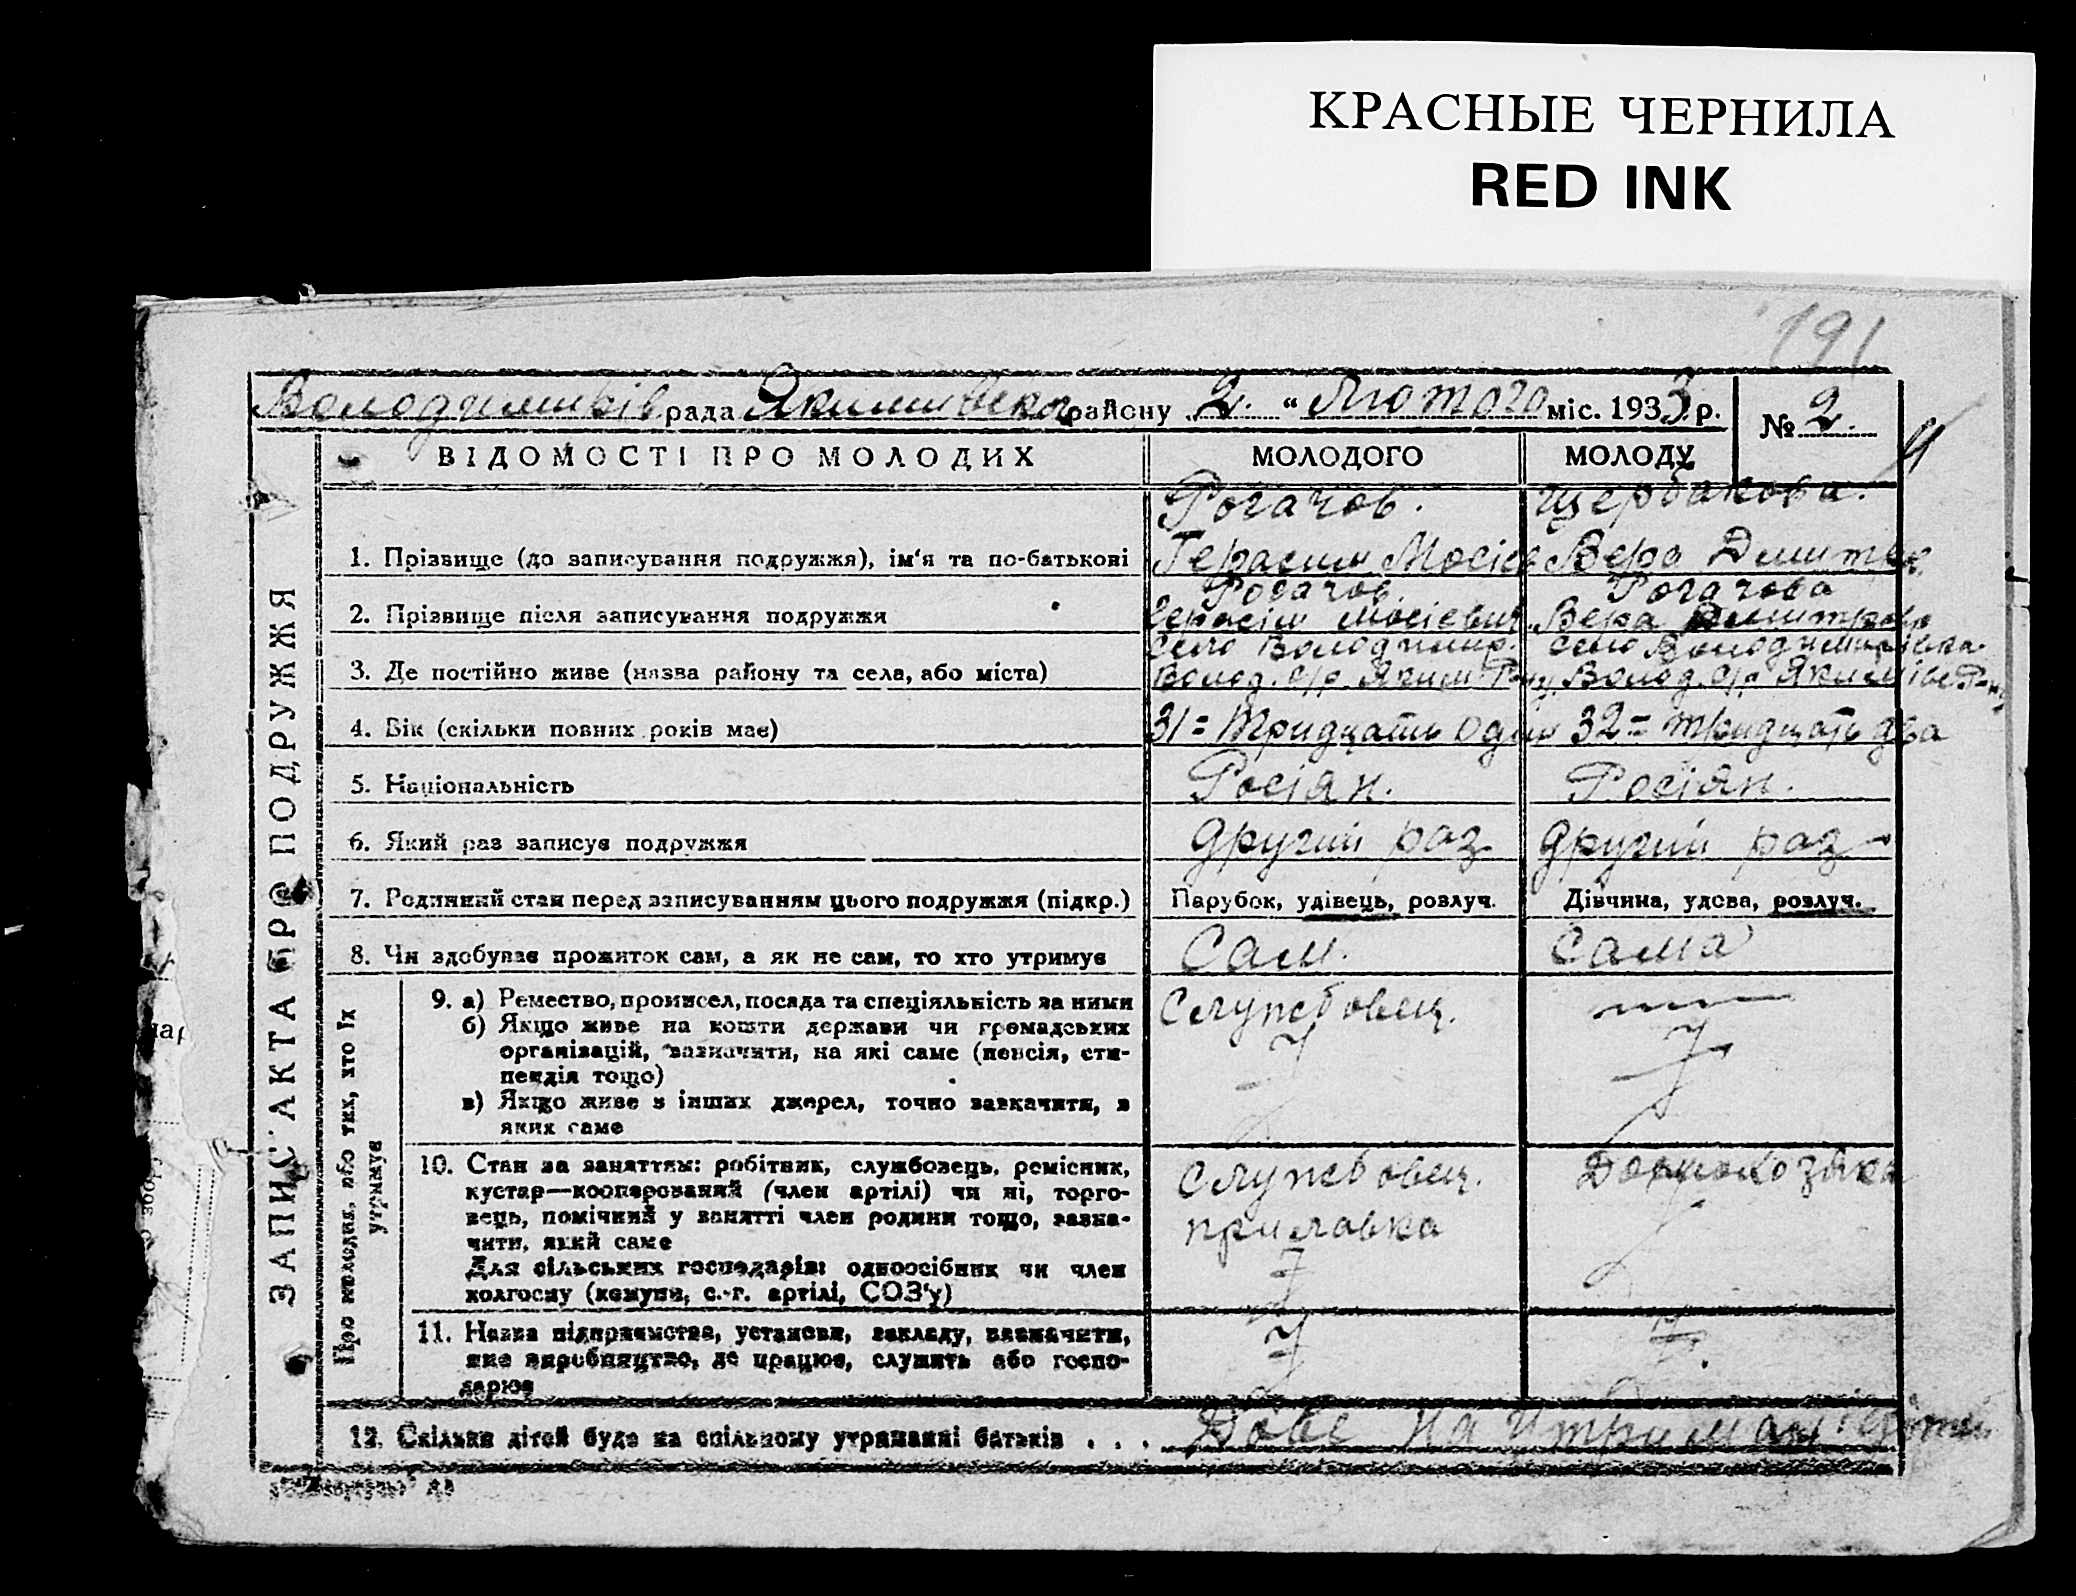 КРАСНЫЕ ЧЕРНИЛА
RED INK
191
рада Якимівськ району 2. “ Лютого міс. 1933 р.
№ 2.
ЗАПИС АКТА ПРО ПОДРУЖЖЯ
ВІДОМОСТІ ПРО МОЛОДИХ МОЛОДОГО МОЛОДУ
Рогачов. Щербакова.
1. Прізвище (до записування подружжя), ім‘я та по-батькові Герасим Мосіев Вера Дмитрів
Рогачов. Рогачова
2. Прізвище після записування подружжя Герасім Мосіевич. Вера Дмитров
село Володимир. село Володимирівка
3. Де постійно живе (назва району та села, або міста) Волод. с/р. Яким Р-ну. Волод. с/р Якимівс Р-ну
4. Вік (скільки повних років має) 31 = Тридцать один 32 = тридцать два
5. Національність Росіян. Росіян.
6. Який раз записує подружжя другий раз другий раз
7. Родинний стан перед записуванням цього подружжя (підкр.) Парубок, удівець, розлуч. Дівчина, удова, розлуч.
8. Чи здобуває прожиток сам, а як не сам, то хто утримує Сам. Сама
Про молодих, або тих, хто їх утримує
9. а) Ремество, промисел, посада та спеціяльність за ними Службовец.
б) Якщо живе на кошти держави чи громадських
організацій, зазначити, на які саме (пенсія, сти-
пендія тощо)
в) Якщо живе з інших джерел, точно зазначити, з
яких саме
10. Стан за заняттям: робітник, службовець, ремісник, Службовец. Домохозяка
кустар—кооперований (член артілі) чи ні, торго-
вець, помічний у занятті член родини тощо, зазна- прилавка
чити, який саме
Для сільських господарів: одноосібник чи член
колгоспу (комуни, с.-г. артілі, СОЗ‘у)
11. Назва підприємства, установи, закладу, зазначити,
яке виробництво, де працює, служить або госпо-
дарює
12. Скільки дітей буде на спільному утриманні батьків . . . Двое на Утриман дітей